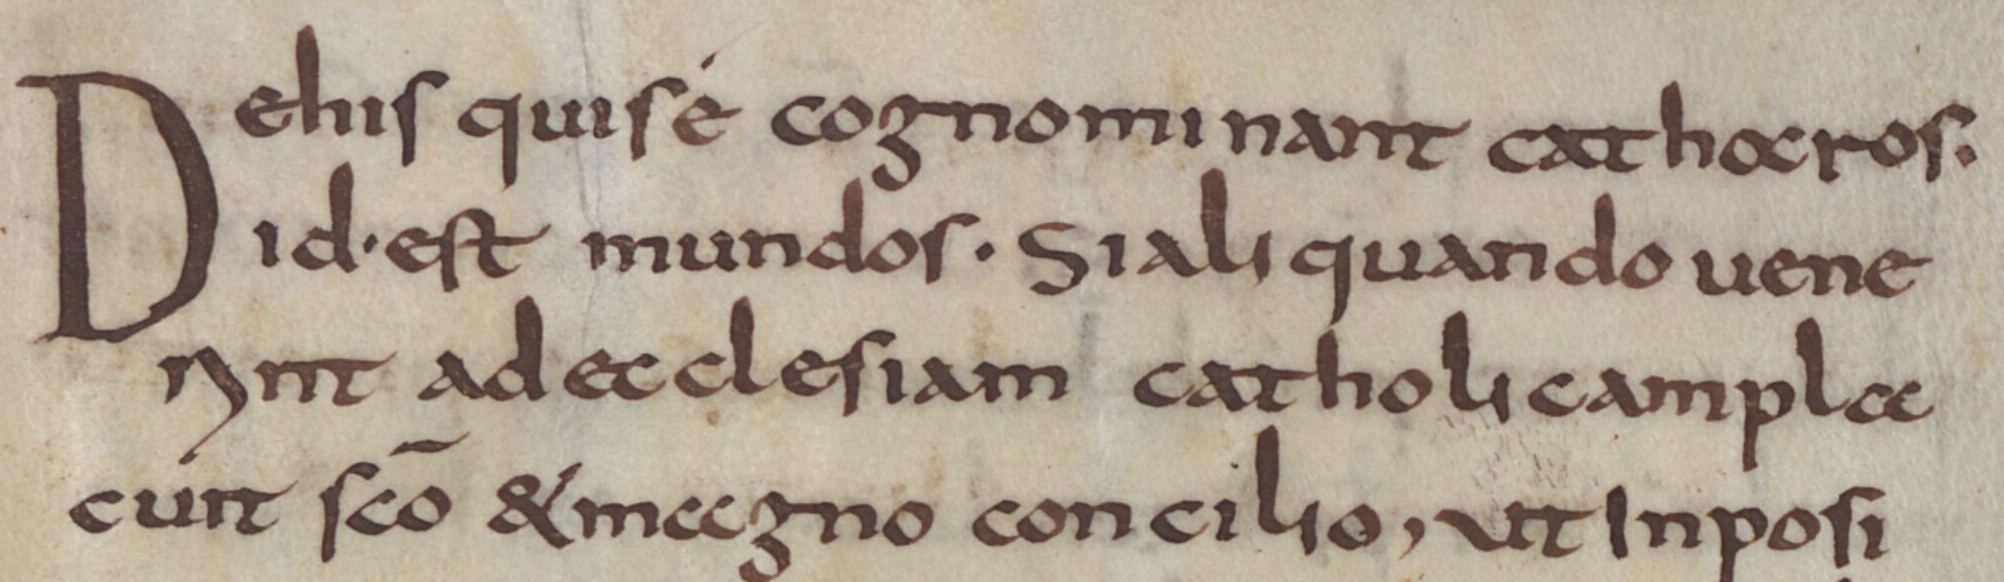 De his qui sé cognominant catharos.
id·est mundos. Si aliquando uene
rint ad ecclesiam catholicam pla
cuit sc̄o & magno concilio, ut Inposi